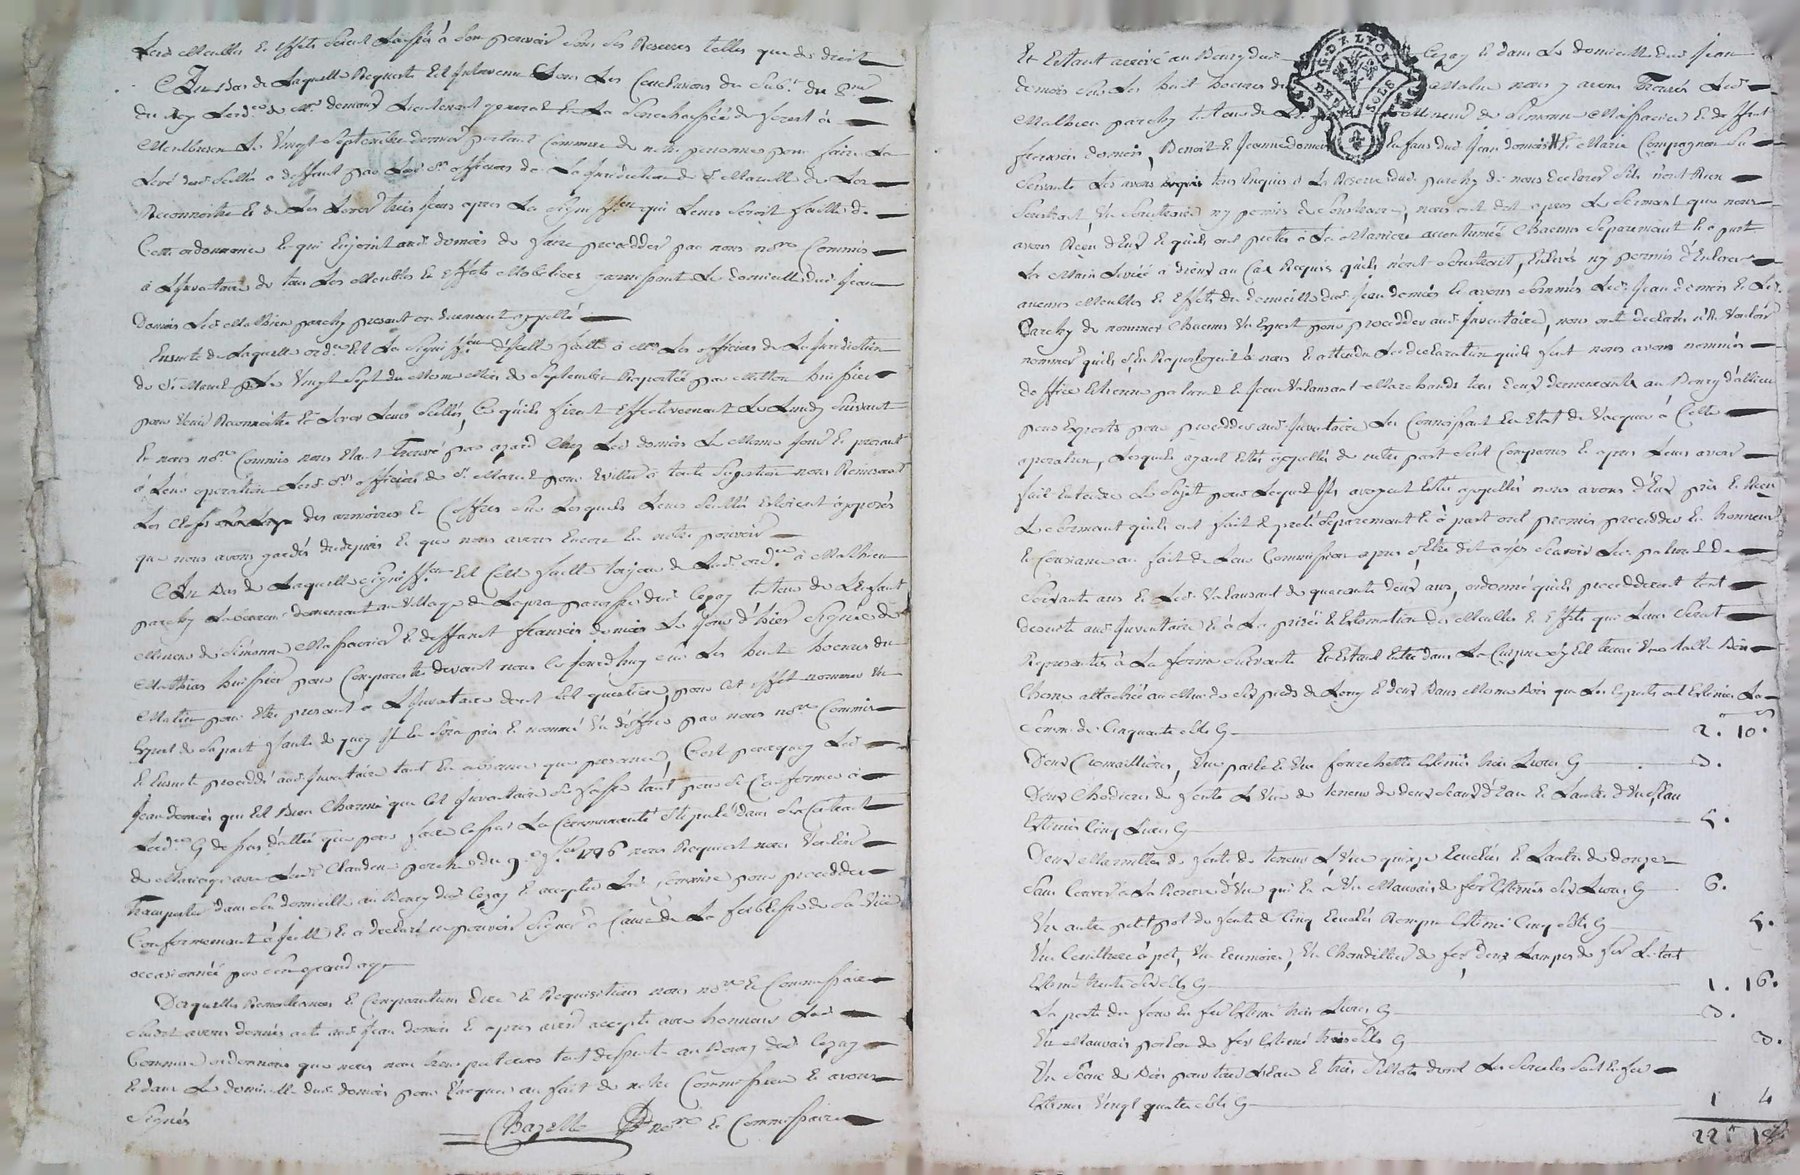 Lesd. Meubles et effets soient Laissés à son pouvoir sous les Reserves telles que de droit
Au Bas de Laquelle Requeste Est Intervenu Les Conclusions du Subt. du Pr.
du Roy Lieutenant general en La Senechaussée de forest à
Montbrison Le Vingt Septembre dernier portant Commise de notre personne pour faire La
Levé des scellés a deffaut par Lesd. Srs officiers de La Juridiction de St Marcelle de Les
Reconnoitre et de Les Lever trois Jours apres La Signiffon qui Leur seroit faitte de
Cette ordonnance et qui Enjoint aud. domois de faire proceder par nous nore Commis
à L'Inventaire de tous Les Meubles et effets Mobiliers garnissant Le domicille dud. Jean
Domois Led. Mathieu parchy present ou duemant appellé
Ensuite de Laquelle ordce Est La Signiffon d'Icelle faitte à Mrs Les officiers de La Juridiction
de St Marcel Le Vingt Sept du Mesme Mois de Septembre Raportée par Mathon huissier
pour Venir Reconnoitre et Lever Leurs scellés, Ce qu'ils firent Effectivement Le Lundy suivant
Et nous nore Commis nous Etant Trouvé par azard Chez Led. domois Le Mesme Jour et present
à Leur operation Lesd. Srs officiers de St Marcel pour Eviter à toute Sugestion nous Remirent
Les Clefs des armoires et Coffres sur Lesquels Leurs scellés Etoient apposés
que nous avons gardés dudepuis et que nous avons Encore En notre pouvoir
Au Bas de Laquelle Signiffon Est Celle faitte Copie de Lad. ordce à Mathieu
parchy Laboureur demeurant au Village de paroisse dud. Cezay tuteur de L'Enfant
Mineur de Simonne Massacrier et deffunt francois domois Le Jour d'hier Signé de
Mathias huissier pour Comparoitre devant nous Ce Jourdhuy sur Les huit heures du
Matin pour Etre present à L'Inventaire dont Est question, pour Cet effet nommer Un
Expert de sa part faute de quoy Il En Sera pris et nommé Un d'office par nous nore Commis
Et Ensuite procedé aud. Inventaire tant En absence que presence, C'est pourquoy Led.
Jean domois qui Est Bien Charmé que Cet Inventaire Se fasse tant pour Se Conformer à
Lordce de pas d'allié que pour faire Cesser La Communauté Stipulée dans Le Contract
de Mariage avec Lad. Claudine du 9e 1746 nous Requiert nous Vouloir
Transporter dans son domicille au Bourg dud. Cezay et accepter Lad. Commise pour proceder
Conformement à Icelle et a declaré ne pouvoir Signer à Cause de La foiblesse de Sa Vüe
occasionnée par son grand age
Desquelles Remontrances et Comparutions dire et Requisitions nous nore et Commissaire
Susdt avons donnés acte aud. Jean domois et apres avoir accepté avec honneur Lad.
Commise ordonnons que nous nous transporterons tout desuite au Bourg dud. Cezay
Et dans Le domicille dud. domois pour Vacquer au fait de notre Commission Et avons
Signés
Chazelle nore et Commissaire
G. DE LYON
DEUX SOLS
Et Estant arrivé au Bourg dud. Cezay Et dans Le domicille dud. Jean
domois sur Les huit heures du Matin nous y avons Trouvés Led.
Mathieu parchy tuteur de Mineur de Simonne Massacrier Et deffunt
francois domois, Benoit et Jeanne domois Enfans dud. Jean domois Et Marie Compagnon Sa
Servante Les avons tous Enquis à La Reserve dud. parchy de nous declarer S'ils n'ont Rien
Soustrait Vu Soustraire ny permis de Soustraire, nous ont dit apres Le Serment que nous
avons Reçu d'Eux Et qu'ils ont prettés à La Maniere accoutumée Chacuns Separement Et a part
La Main Levée à Dieu au Cas Requis qu'ils n'ont Soustrait, Enlevés ny permis d'Enlever
aucuns Meubles Et Effets du domicille dud. Jean domois Et avons Sommés Led. Jean domois Et Led.
Parchy de nommer Chacuns Un Expert pour proceder aud. Inventaire, nous ont declarés n'En Vouloir
nommer qu'ils s'En Raportoyent à nous Et attendu La declaration qu'ils font nous avons nommés
d'office Etienne palmet Et Jean Valansant Marchands tous deux demeurants au Bourg d'allieu
pour Experts pour proceder aud. Inventaire Les Connoissant En Etat de Vacquer à Cette
operation, Lesquels ayant Estés appellés de notre part Sont Comparus Et apres Leur avoir
fait Entendre Le Sujet pour Lequel Ils avoyent Estés appellés nous avons d'Eux pris Et Reçu
Le Serment qu'ils ont fait Et presté Separement Et à part ont promis proceder En honneur
Et Conscience au fait de Leur Commission apres s'Etre dit agés Scavoir Led. palmet De
Soixante ans Et Led. Valansant de quarente deux ans, ordonné qu'ils procederont tout
desuite aud. Inventaire Et à La prisée Et Estimation des Meubles Et Effets qui Leur Seront
Representés à La forme Suivante Et Estant Entré dans La Cuisine y Est trouvé Une table Bois
Chesne attachée au Mur de Six pieds de Long Et deux Bancs Mesme Bois que Les Experts ont Estimés La
Somme de Cinquante Sols Cy 2. 10.
Deux Cramaillieres, Une paile et Une fourchette Estimés trois Livres Cy 3.
Deux Chodieres de fonte L'Une de teneur de deux Seaux d'Eau Et L'autre d'Un Seau
Estimés Cinq Livres Cy 5.
Deux Marmittes de fonte de teneur L'Une quinze Ecuelées Et L'autre de douze
Sans Couvercle à La Reserve d'Une qui En à Un Mauvais de fer Estimés Six Livres Cy 6.
Un autre petit pot de fonte de Cinq Ecuelées Rompu Estimé Cinq Sols Cy 5.
Une Cuilliere à pot, Une Ecumoire, Un Chandillier de fer, deux Lampes de fer Le tout
Estimé trente Six Sols Cy 1. 16.
La porte du four En fer Estimé trois Livres Cy 3.
Un Mauvais de fer Estimé trois Sols Cy 3.
Un Sceau de Bois pour tenir L'Eau Et trois Sellottes dont Les Sercles Sont En fer
Estimés Vingt quatre Sols Cy 1 4
22 18